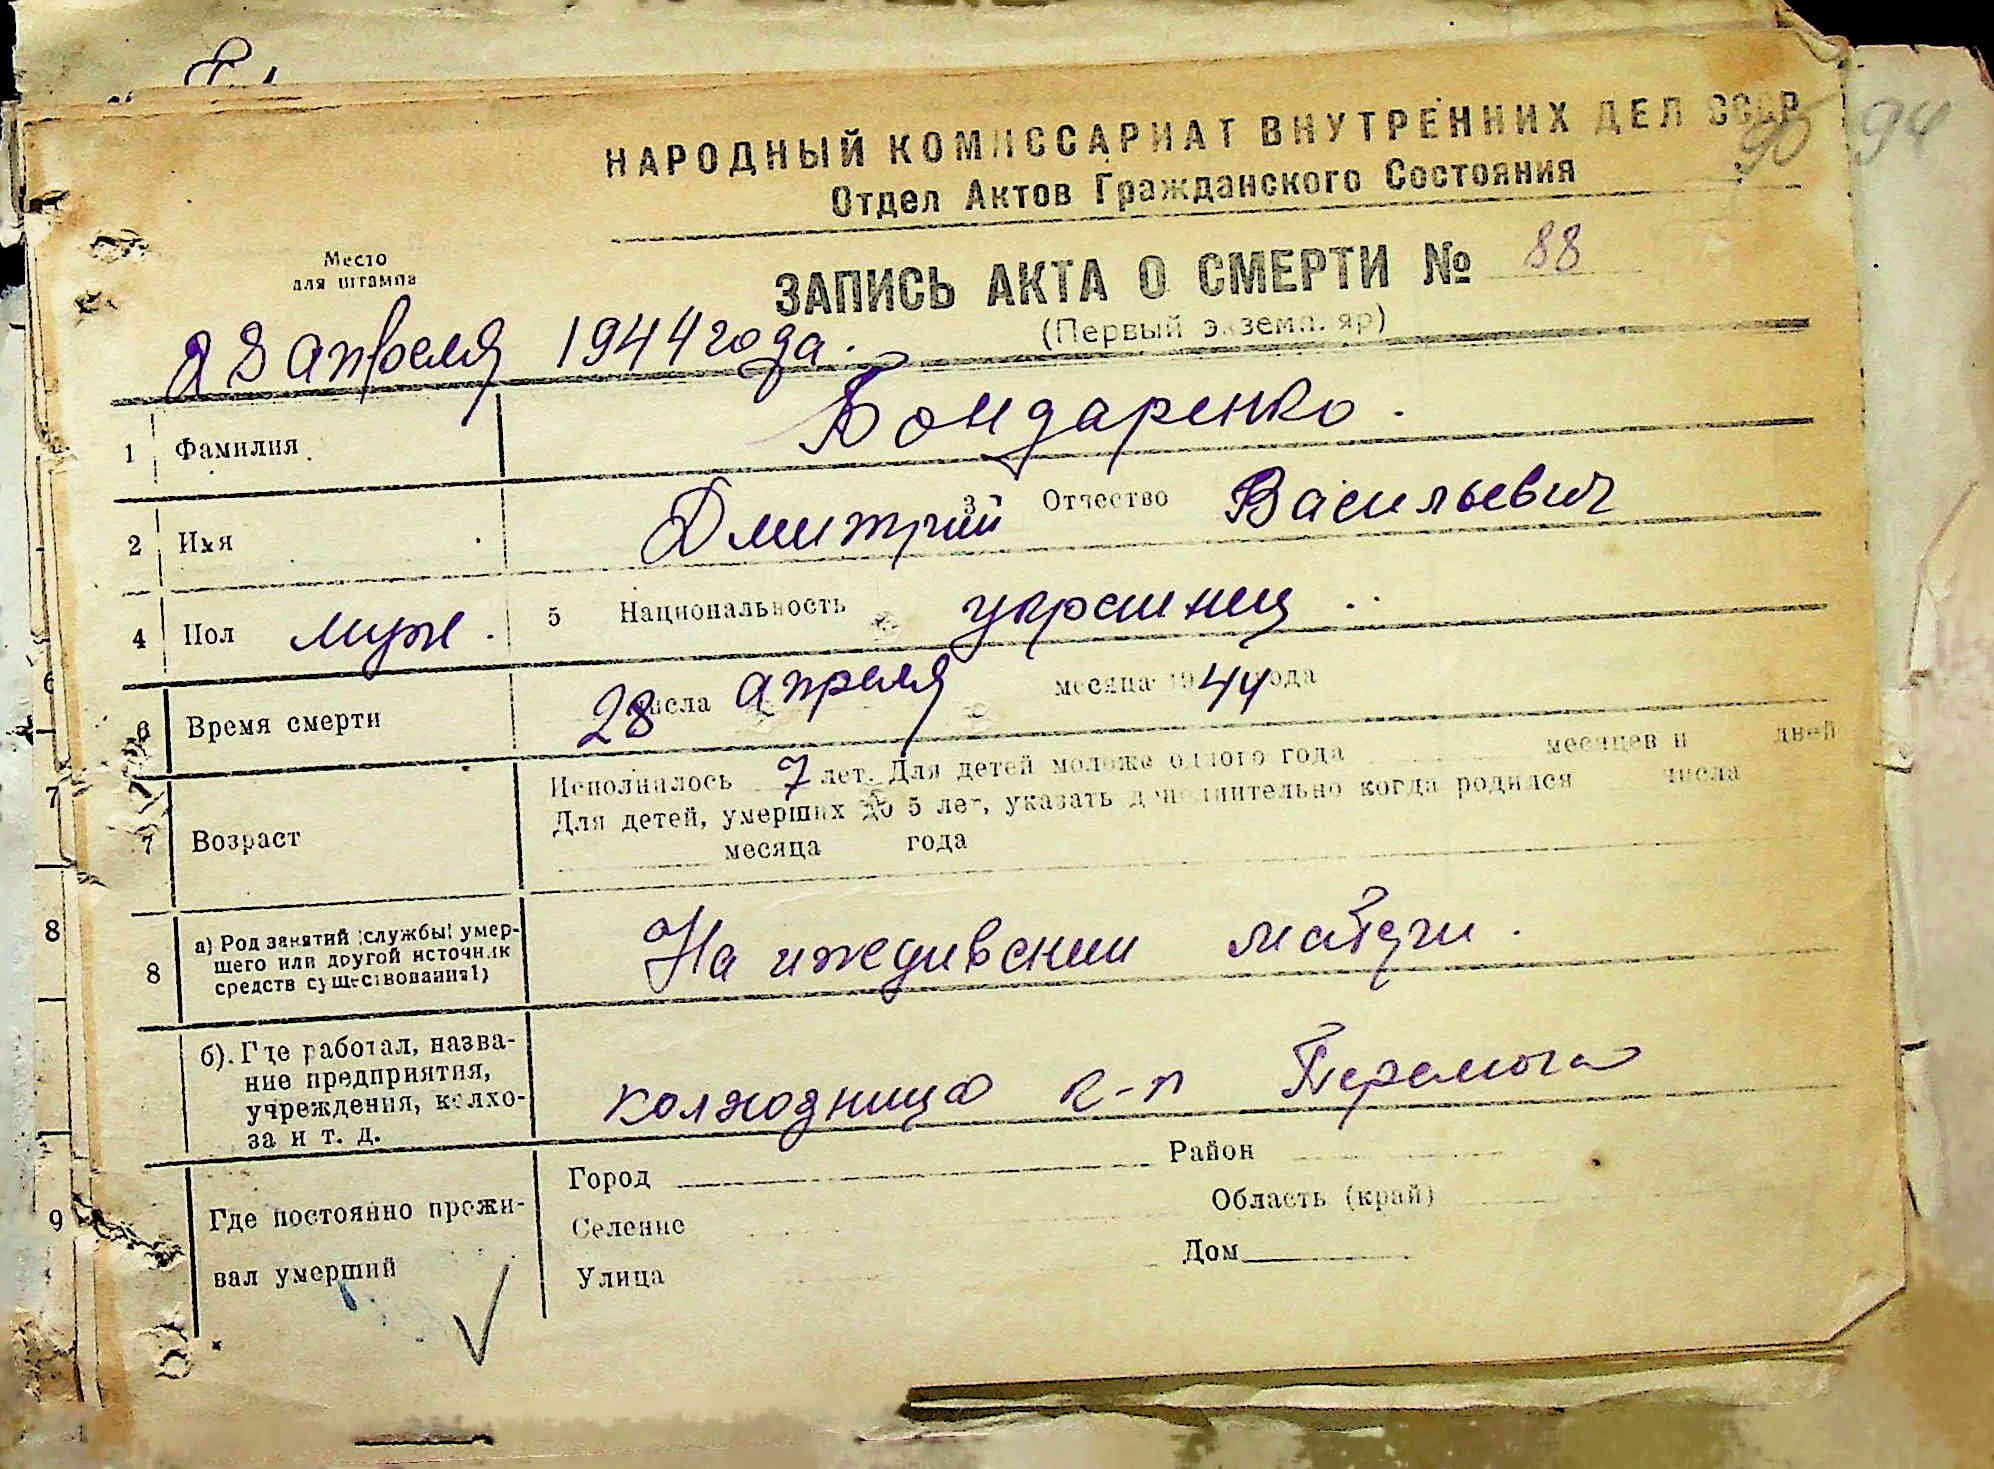 НАРОДНЫЙ КОМИССАРИАТ ВНУТРЕННИХ ДЕЛ СССР
90 94
Отдел Актов Гражданского Состояния
Место
для штампа
ЗАПИСЬ АКТА О СМЕРТИ № 88
(Первый экземпляр)
28 апреля 1944 года.
1 Фамилия Бондаренко.
2 Имя Дмитрий 3 Отчество Васильевич
4 Пол муж. 5 Национальность украинец
6 Время смерти 28 числа апреля месяца 1944 года
7 Возраст
Исполнилось 7 лет. Для детей моложе одного года месяцев и дней
Для детей, умерших до 5 лет, указать дополнительно когда родился числа
месяца года
8 а) Род занятий (службы) умер-
шего или другой источник
средств существования1)
На иждивении матери.
б). Где работал, назва-
ние предприятия,
учреждения, колхо-
за и т. д.
колхозница к-п Перемога
9 Где постоянно прожи-
вал умерший
Город Район
Селение Область (край)
Улица Дом
6
7
8